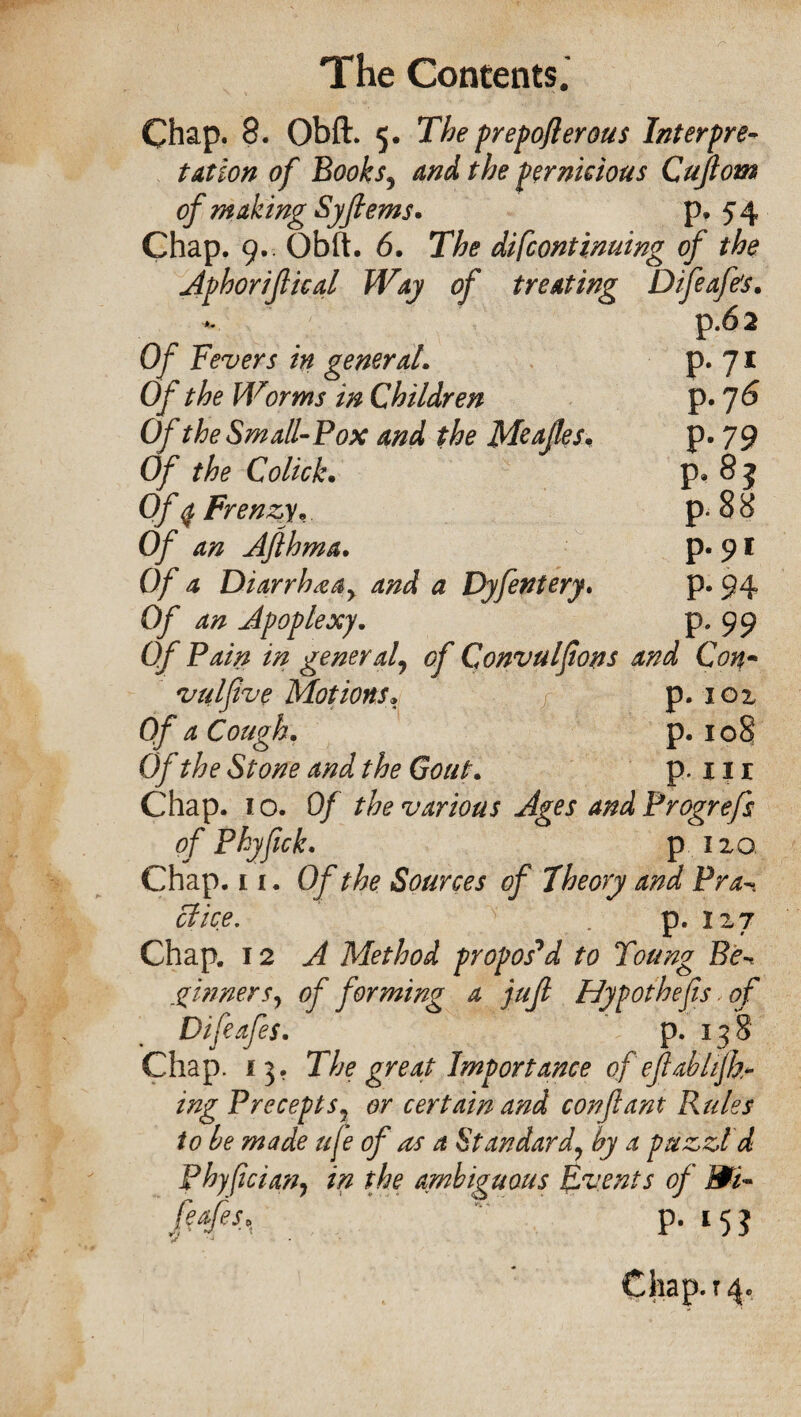 The Contents.
Chap. 8. Obſt. 5. The prepoſterous Interpre-
tation of Books, and the pernicious Cuſtom
of making Syſtems. p. 54
Chap. 9. Obſt. 6. The diſcontinuing of the
Aphoriſtical Way of treating Diſeaſes.
p.62
Of Fevers in general. p. 71
Of the Worms in Children p. 76
Of the Small-Pox and the Meaſles. p. 79
Of the Colick. p. 83
Of a Frenzy. p. 88
Of an Aſthma. p. 91
Of a Diarrhæa, and a Dyſentery. p. 94
Of an Apoplexy. p. 99
Of Pain in general, of Convulſions and Con-
vulſive Motions. p. 102
Of a Cough. p. 108
Of the Stone and the Gout. p. 111
Chap. 10. Of the various Ages and Progreſs
of Phyſick. p 120
Chap. 11. Of the Sources of Theory and Pra-
ctice. p. 127
Chap. 12 A Method propos'd to Young Be-
ginners, of forming a juſt Hypotheſis of
Diſeaſes. p. 138
Chap. 13. The great Importance of eſtabliſh-
ing Precepts, or certain and conſtant Rules
to be made uſe of as a Standard, by a puzzl'd
Phyſician, in the ambiguous Events of Di-
ſeaſes. p. 153
Chap. 14.